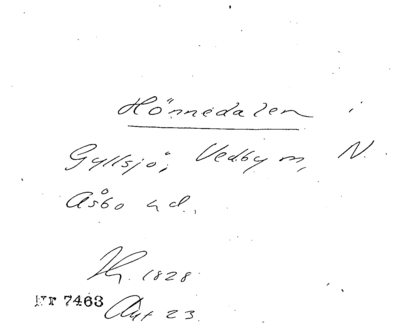 Hönnedalen i
Gyllsjö, Vedby m, N.
Åsbo hd.
1828
Nr 7463
23